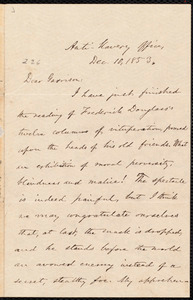 Anti-Slavery Office,
226 Dec. 18, 1853.
Dear Garrison
I have just finished
the reading of Frederick Douglass's
twelve columns of vituperation poured
upon the heads of his old friends. What
an exhibition of moral perversity,
blindness and malice! The spectacle
is indeed painful, but I think
we may congratulate ourselves
that, at last, the mask is dropped,
and he stands before the world
an avowed enemy instead of a
secret, stealthy foe. My apprehension